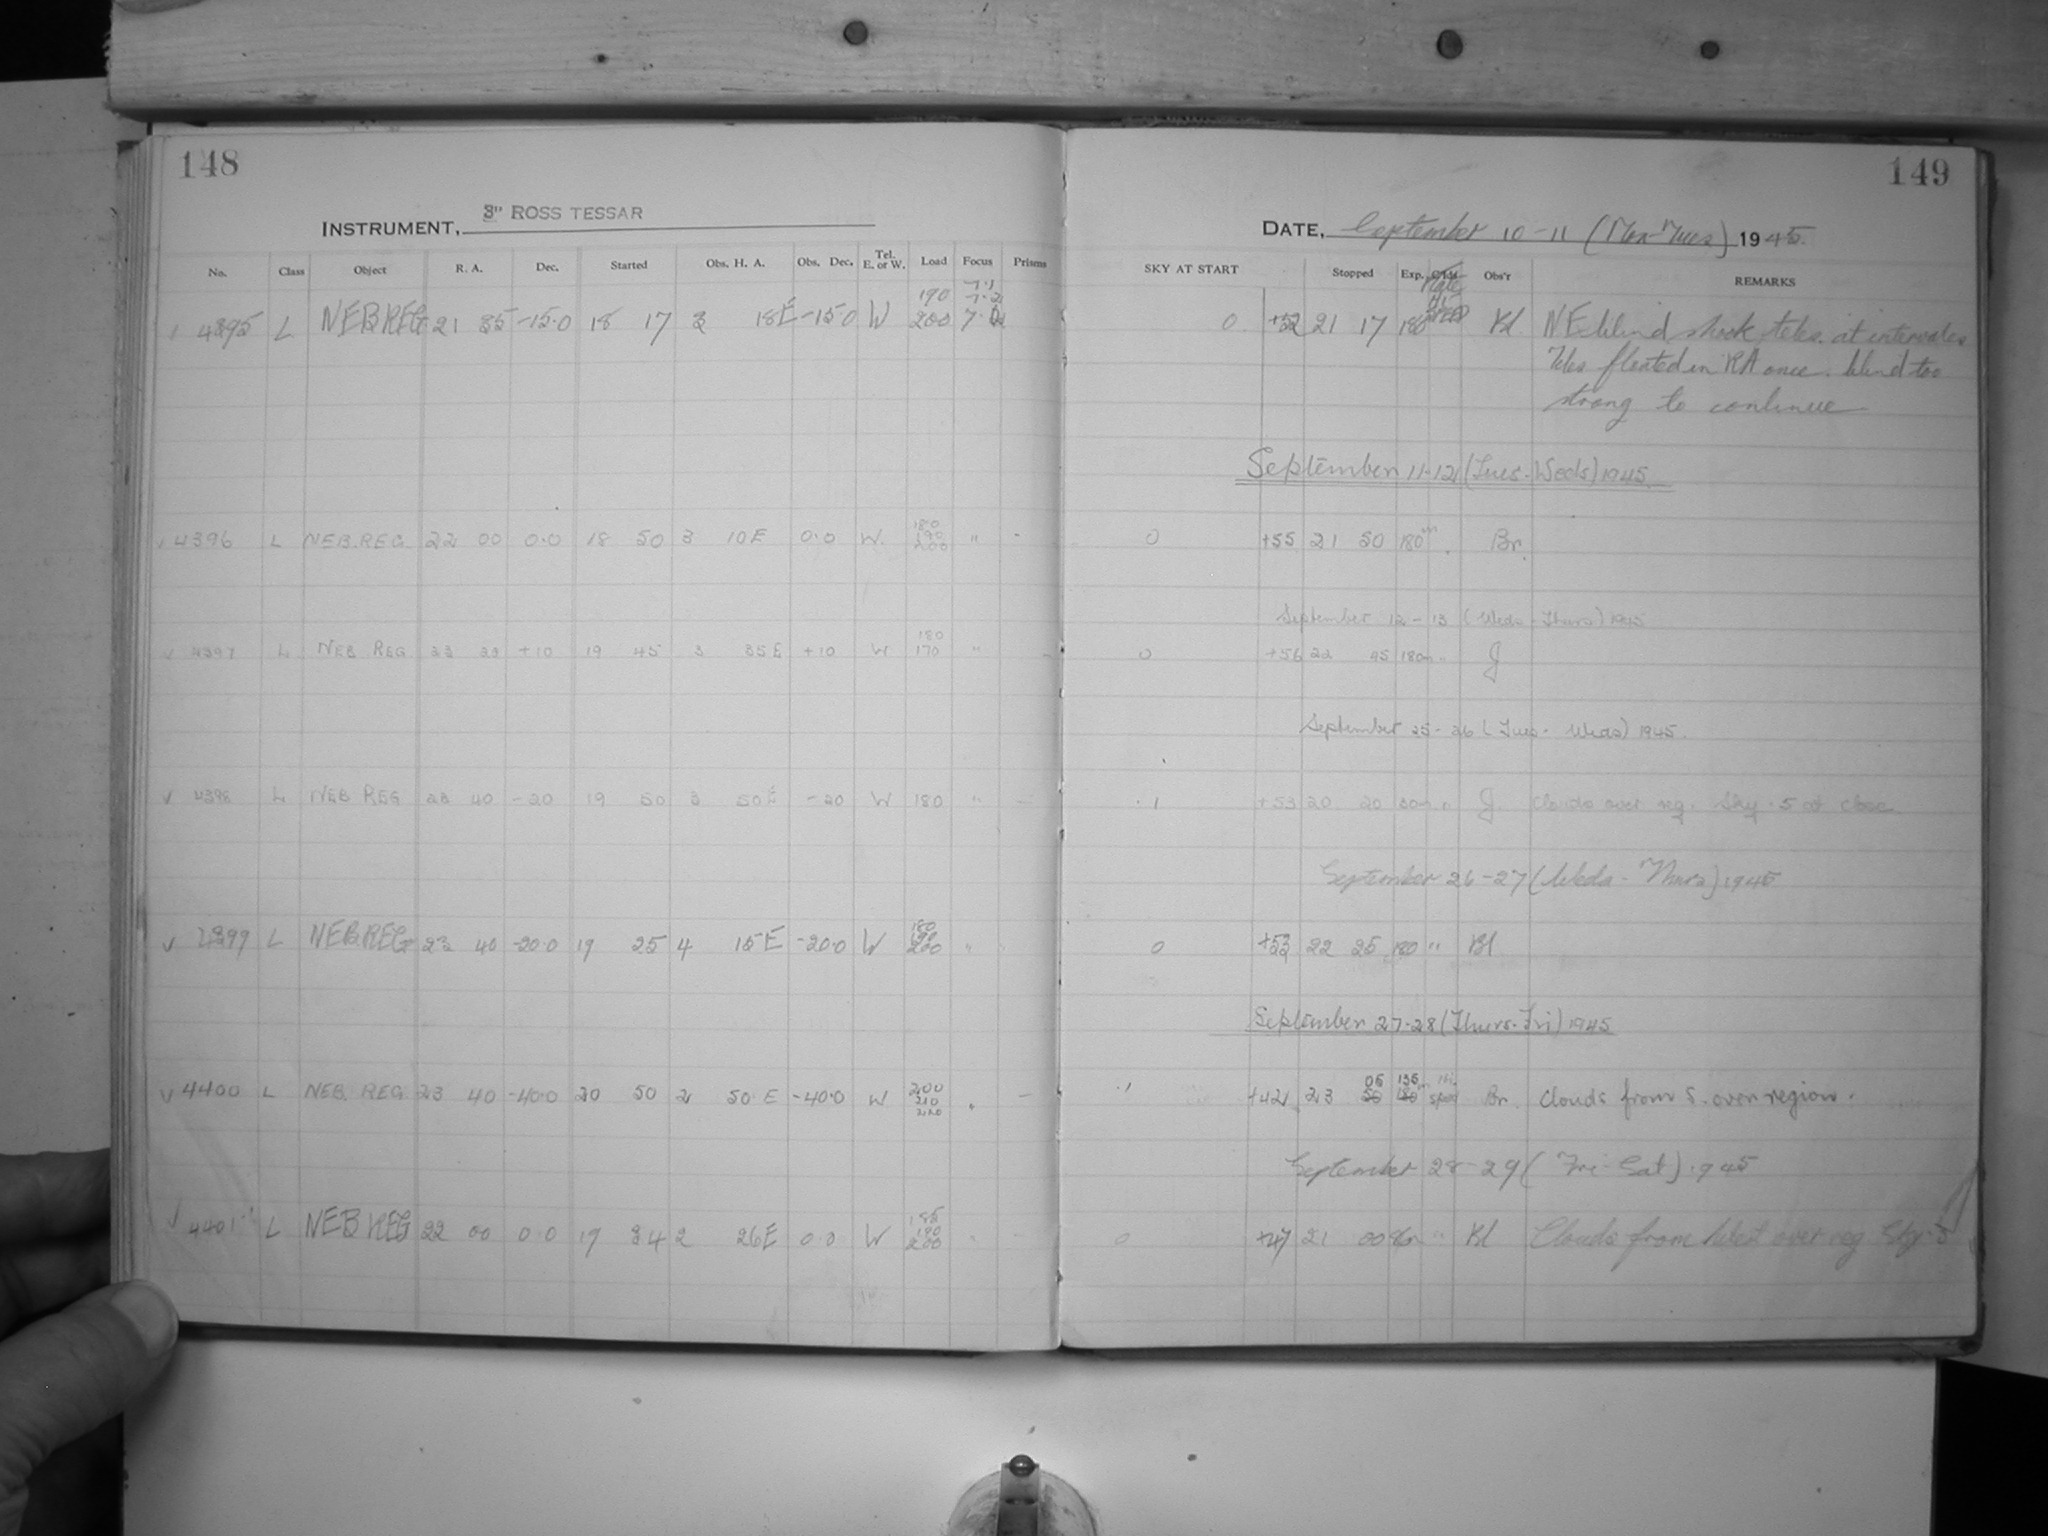 148
149
INSTRUMENT, 3" ROSS TESSAR
DATE, September 10-11 (Mon-Tues) 1945.
No. Class Object R. A. Dec. Started Obs. H. A. Obs. Dec. Tel. E. or W. Load Focus Prisms SKY AT START Stopped Exp. Plate Obs'r REMARKS
4395 L NEB REG 21 35 -15.0 18 17 3 18E -15.0 W 190 200 0 +52 21 17 180 Bl NE wind shook teles. at intervals
Teles floated in RA once. Wind too
strong to continue
September 11-12 (Tues-Weds) 1945
4396 L NEB. REG 22 00 0.0 18 50 3 10 E 0.0 W. 180 190 200 " - 0 +55 21 50 180m Br.
September 12-13 (Weds-Thurs) 1945
4397 L NEB REG +10 19 45 3 35 E +10 W 180 170 " - 0 +56 22 45 180m " J
September 25-26 (Tues-Weds) 1945.
4398 L NEB REG 23 40 -20 19 50 3 50 E -20 W 180 " - .1 +53 20 20 30m " J. Clouds over reg. Sky .5 at close.
September 26-27 (Weds-Thurs) 1945
4399 L NEB.REG 23 40 -20.0 19 25 4 15 E -20.0 W 200 " 0 +53 22 25 180 " Bl
September 27-28 (Thurs-Fri) 1945
4400 L NEB. REG 23 40 -40.0 20 50 2 50 E -40.0 W 200 210 - +42 23 05 50 135 180 Br. Clouds from S. over region.
September 28-29 (Fri-Sat) 1945
4401 L NEB REG 22 00 0.0 19 34 2 26E 0.0 W 185 190 200 - 0 +47 21 00 86m " Bl Clouds from West over reg Sky .5